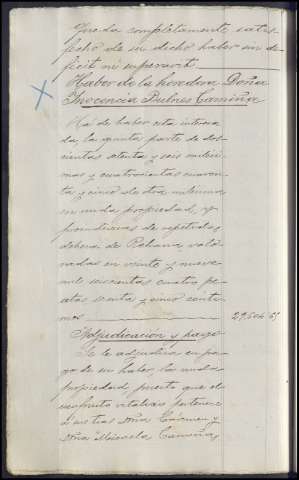 queda completamente satis-
fecho de su dicho haber sin de-
ficit ni superavit.
Haber de la heredera Doña
Inocencia Bulnes Camiña
Ha de haber esta interesa-
da, la quinta parte de dos-
cientas setenta y seis milési-
mas y cuatrocientas cuaren-
ta y cinco de otra milésima
en nuda propiedad,
de
dehesa de valo-
radas en veinte y nueve
mil seiscientas cuatro pe-
setas sesenta y cinco cénti-
mos 29,604 65
Adjudicación y pago
Se le adjudica en pa-
go de su haber, la nuda
propiedad, puesto que el
usufruto vitalicio pertenece
á sus tias Doña Cármen y
Doña Micaela Camiña,